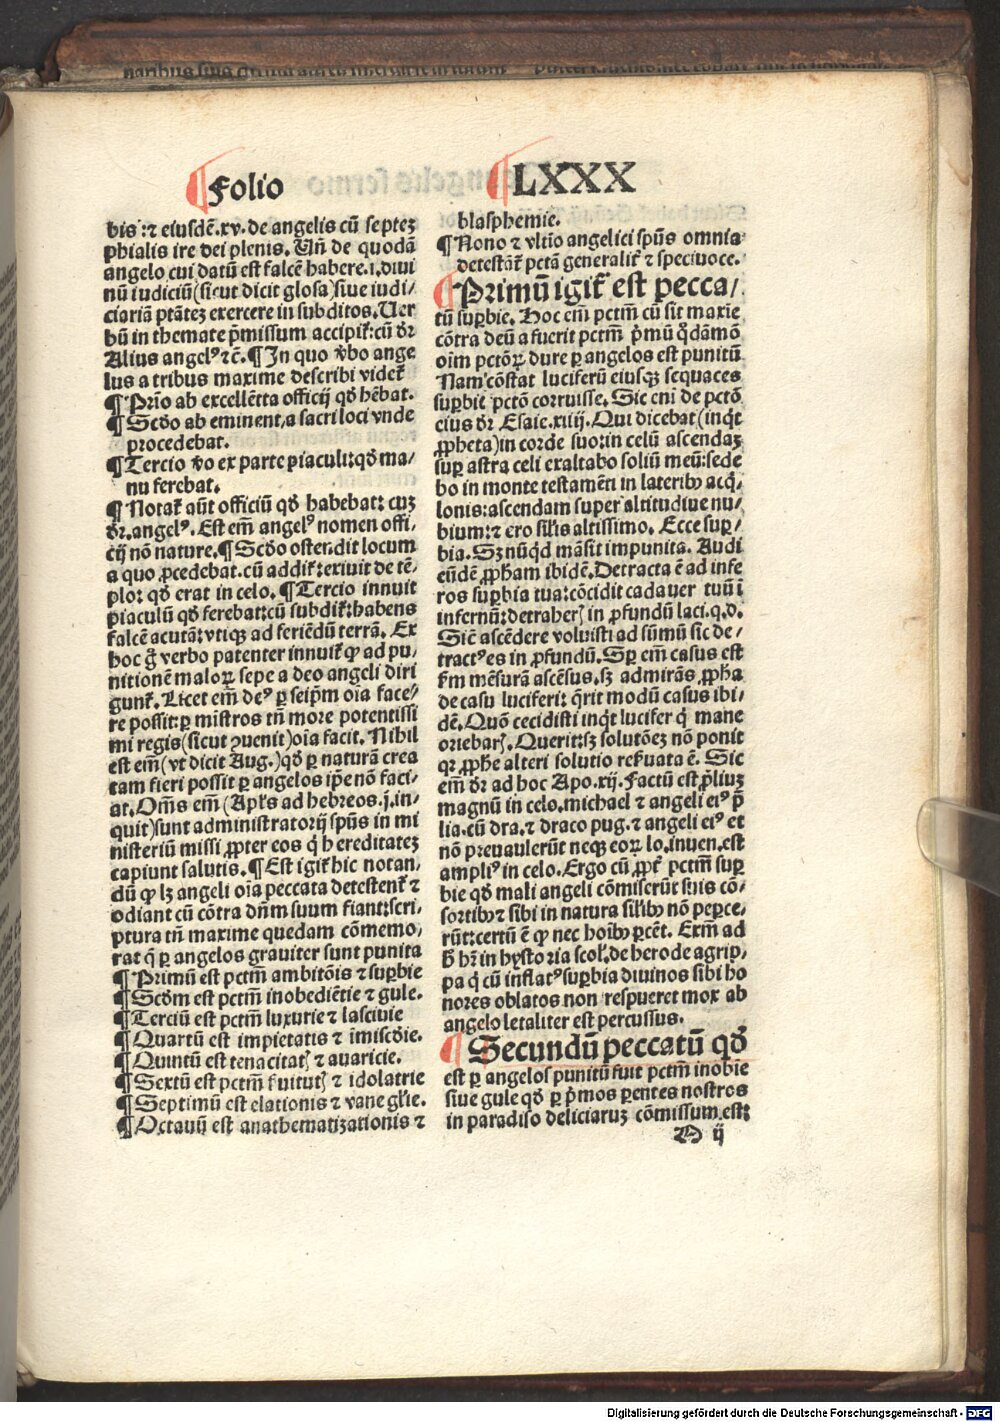 Folio LXXX
bis: ⁊ eiusdē.xv. de angelis cū septeꝫ
phialis ire dei plenis. Uñ de quodā
angelo cui datū est falcē habere.i.diui
nū iudiciū (sicut dicit glosa) siue iudi/
ciariā ptāteꝫ exercere in subditos. Uer
bū in themate p̄missum accipit̄: cū dr̄
Alius angelꝰ ⁊c̄. ¶ In quo v̄bo ange
lus a tribus maxime describi videt̄
¶ Prīo ab excellētia officij qd̄ hēbat.
¶ Scd̄o ab eminentia sacri loci vnde
procedebat.
¶ Tercio v̄o ex parte piaculi: qd̄ ma/
nu ferebat.
¶ Notat̄ aūt officiū qd̄ habebat: cuꝫ
dr̄.angelꝰ. Est em̄ angelꝰ nomen offi/
cij nō nature. ¶ Scd̄o ostendit locum
a quo ꝓcedebat. cū addit̄: exiuit de tē/
plo: qd̄ erat in celo. ¶ Tercio innuit
piaculū qd̄ ferebat: cū subdit̄: habens
falcē acutā: vtiqꝫ ad feriēdū terrā. Ex
hoc g̊ verbo patenter innuit̄ ꝙ ad pu/
nitionē maloꝝ sepe a deo angeli diri
gunt̄. Licet em̄ deꝰ ꝑ seip̄m oīa face/
re possit: ꝑ mīstros tn̄ more potentissi
mi regis (sicut ꝯuenit) oīa facit. Nihil
est em̄ (vt dicit Aug.) qd̄ ꝑ naturā crea
tam fieri possit ꝑ angelos ip̄e nō faci/
at. Om̄s em̄ (Apl̄s ad hebreos.j. in/
quit) sunt administratorij spūs in mi
nisteriū missi ꝓpter eos q̇ hereditateꝫ
capiunt salutis. ¶ Est igit̄ hic notan/
dū ꝙ lꝫ angeli oīa peccata detestent̄ ⁊
odiant cū cōtra dn̄m suum fiant: scri/
ptura tn̄ maxime quedam cōmemo/
rat q̄ ꝑ angelos grauiter sunt punita
¶ Primū est pctm̄ ambitōis ⁊ suꝑbie
¶ Scd̄m est pctm̄ inobediētie ⁊ gule.
¶ Terciū est pctm̄ luxurie ⁊ lasciuie
¶ Quartū est impietatis ⁊ īmiscd̄ie.
¶ Quintū est tenacitatꝭ ⁊ auaricie.
¶ Sextū est pctm̄ s̄uitutꝭ ⁊ idolatrie
¶ Septimū est elationis ⁊ vane gl̄ie.
¶ Octauū est anathematizationis ⁊
blasphemie.
¶ Nono ⁊ vltīo angelici spūs omnia
detestāt̄ pctā generalit̄ ⁊ speciuoce.
Primū igit̄ est pecca/
tū suꝑbie. Hoc em̄ pctm̄ cū sit maxīe
cōtra deū a fuerit pctm̄ p̄mū q̄dāmō
oīm pctōꝝ dure ꝑ angelos est punitū
Nam cōstat luciferū eiusqꝫ sequaces
suꝑbie pctō corruisse. Sic eni de pctō
eius dr̄ Esaie.xiiij. Qui dicebat (inq̇t
ꝓpheta) in corde suo: in celū ascendaꝫ
suꝑ astra celi exaltabo soliū meū: sede
bo in monte testamēti in lateribꝰ aq̇/
lonis: ascendam super altitudine nu/
bium: ⁊ ero sil̄is altissimo. Ecce suꝑ/
bia. Sꝫ nūq̇d māsit impunita. Audi
eūdē ꝓpham ibidē. Detracta ē ad infe
ros suꝑbia tua: cōcidit cadauer tuū ī
infernū: detraherꝭ in ꝓfundū laci. q.d.
Sic̄ ascēdere voluisti ad sūmū sic de/
tractꝰ es in ꝓfundū. Sꝑ em̄ casus est
s̄m mēsurā ascēsus. sꝫ admirās ꝓpha
de casu luciferi: q̄rit modū casus ibi/
dē. Quō cecidisti inq̇t lucifer q̇ mane
oriebarꝭ. Querit: sꝫ solutōeꝫ nō ponit
qꝛ ꝓphe alteri solutio res̄uata ē. Sic
em̄ dr̄ ad hoc Apo.xij. Factū est p̄liuꝫ
magnū in celo. michael ⁊ angeli eiꝰ p̄
lia.cū dra. ⁊ draco pug. ⁊ angeli eiꝰ et
nō preualuerūt neqꝫ eoꝝ lo. inuen. est
ampliꝰ in celo. Ergo cū ꝓpt̄ pctm̄ suꝑ
bie qd̄ mali angeli cōmiserūt suis cō/
sortibꝰ ⁊ sibi in natura sil̄ibꝰ nō peꝑce/
rūt: certū ē ꝙ nec hoībꝰ ꝑcēt. Exm̄ ad
h̄ hr̄ in hystoria scol̄. de herode agrip/
pa q̇ cū inflatꝰ suꝑbia diuinos sibi ho
nores oblatos non respueret mox ab
angelo letaliter est percussus.
Secundū peccatū qd̄
est ꝑ angelos punitū fuit pctm̄ inobie
siue gule qd̄ ꝑ p̄mos ꝑentes nostros
in paradiso deliciaruꝫ cōmissum est:
O ij
Digitalisierung gefördert durch die Deutsche Forschungsgemeinschaft - DFG